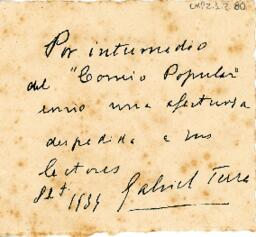 Por intermedio
del "Correo Popular"
envio una afectuosa
despedida a sus
lectores
1934 Gabriel Terra